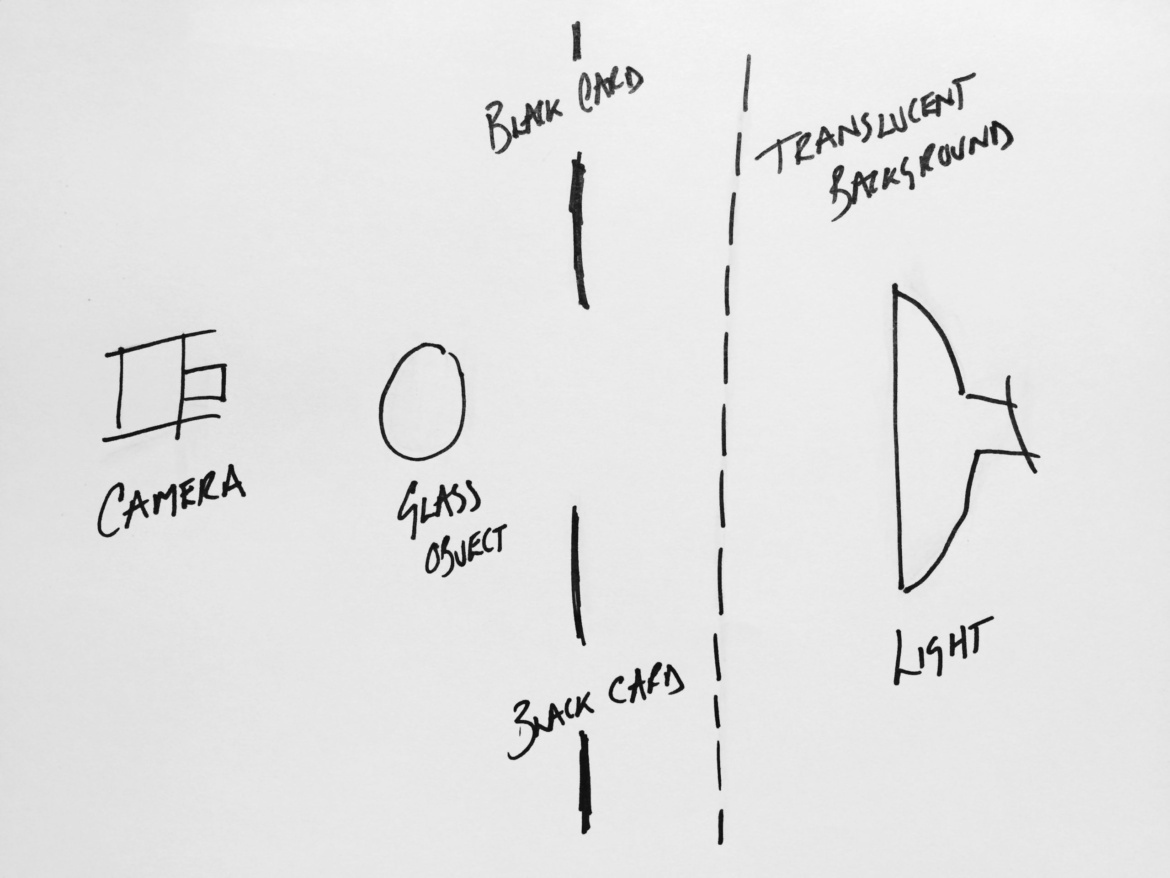 BLACK CARD
TRANSLUCENT
BACKGROUND
CAMERA
GLASS
OBJECT
LIGHT
BLACK CARD